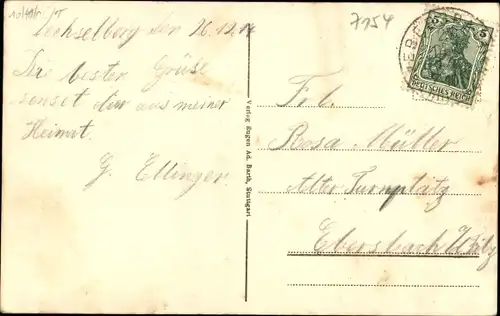 10/4910/5T
7154
den 26.12.14
Die besten Grüße
sendet dir aus meiner
Heimat.
G. Ellinger
Verlag Eugen Ad. Barth, Stuttgart
5 5
DEUTSCHES REICH
Frl.
Rosa Müller
Alter Turnplatz
Ebersbach